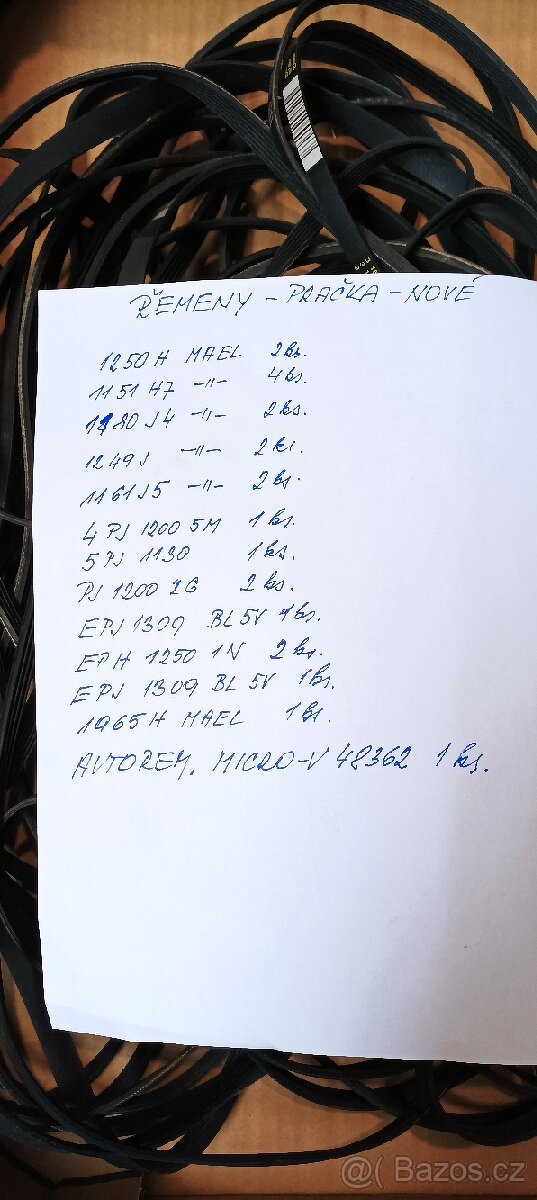 ŘEMENY - PRAČKA - NOVÉ
1250 H MAEL 2ks.
1151 H7 -"- 4ks.
1180 J4 -"- 2ks.
1249 J -"- 2ks.
1161 J5 -"- 2ks.
4 PJ 1200 5M 1ks.
5 PJ 1130 1ks.
PJ 1200 ZG 2ks.
EPJ 1309 BL 5V 1ks.
EPH 1250 1N 2ks.
EPJ 1309 BL 5V 1ks.
1965 H MAEL 1ks.
AUTOŘEM. MICRO-V 48362 1ks.
@( Bazos.cz